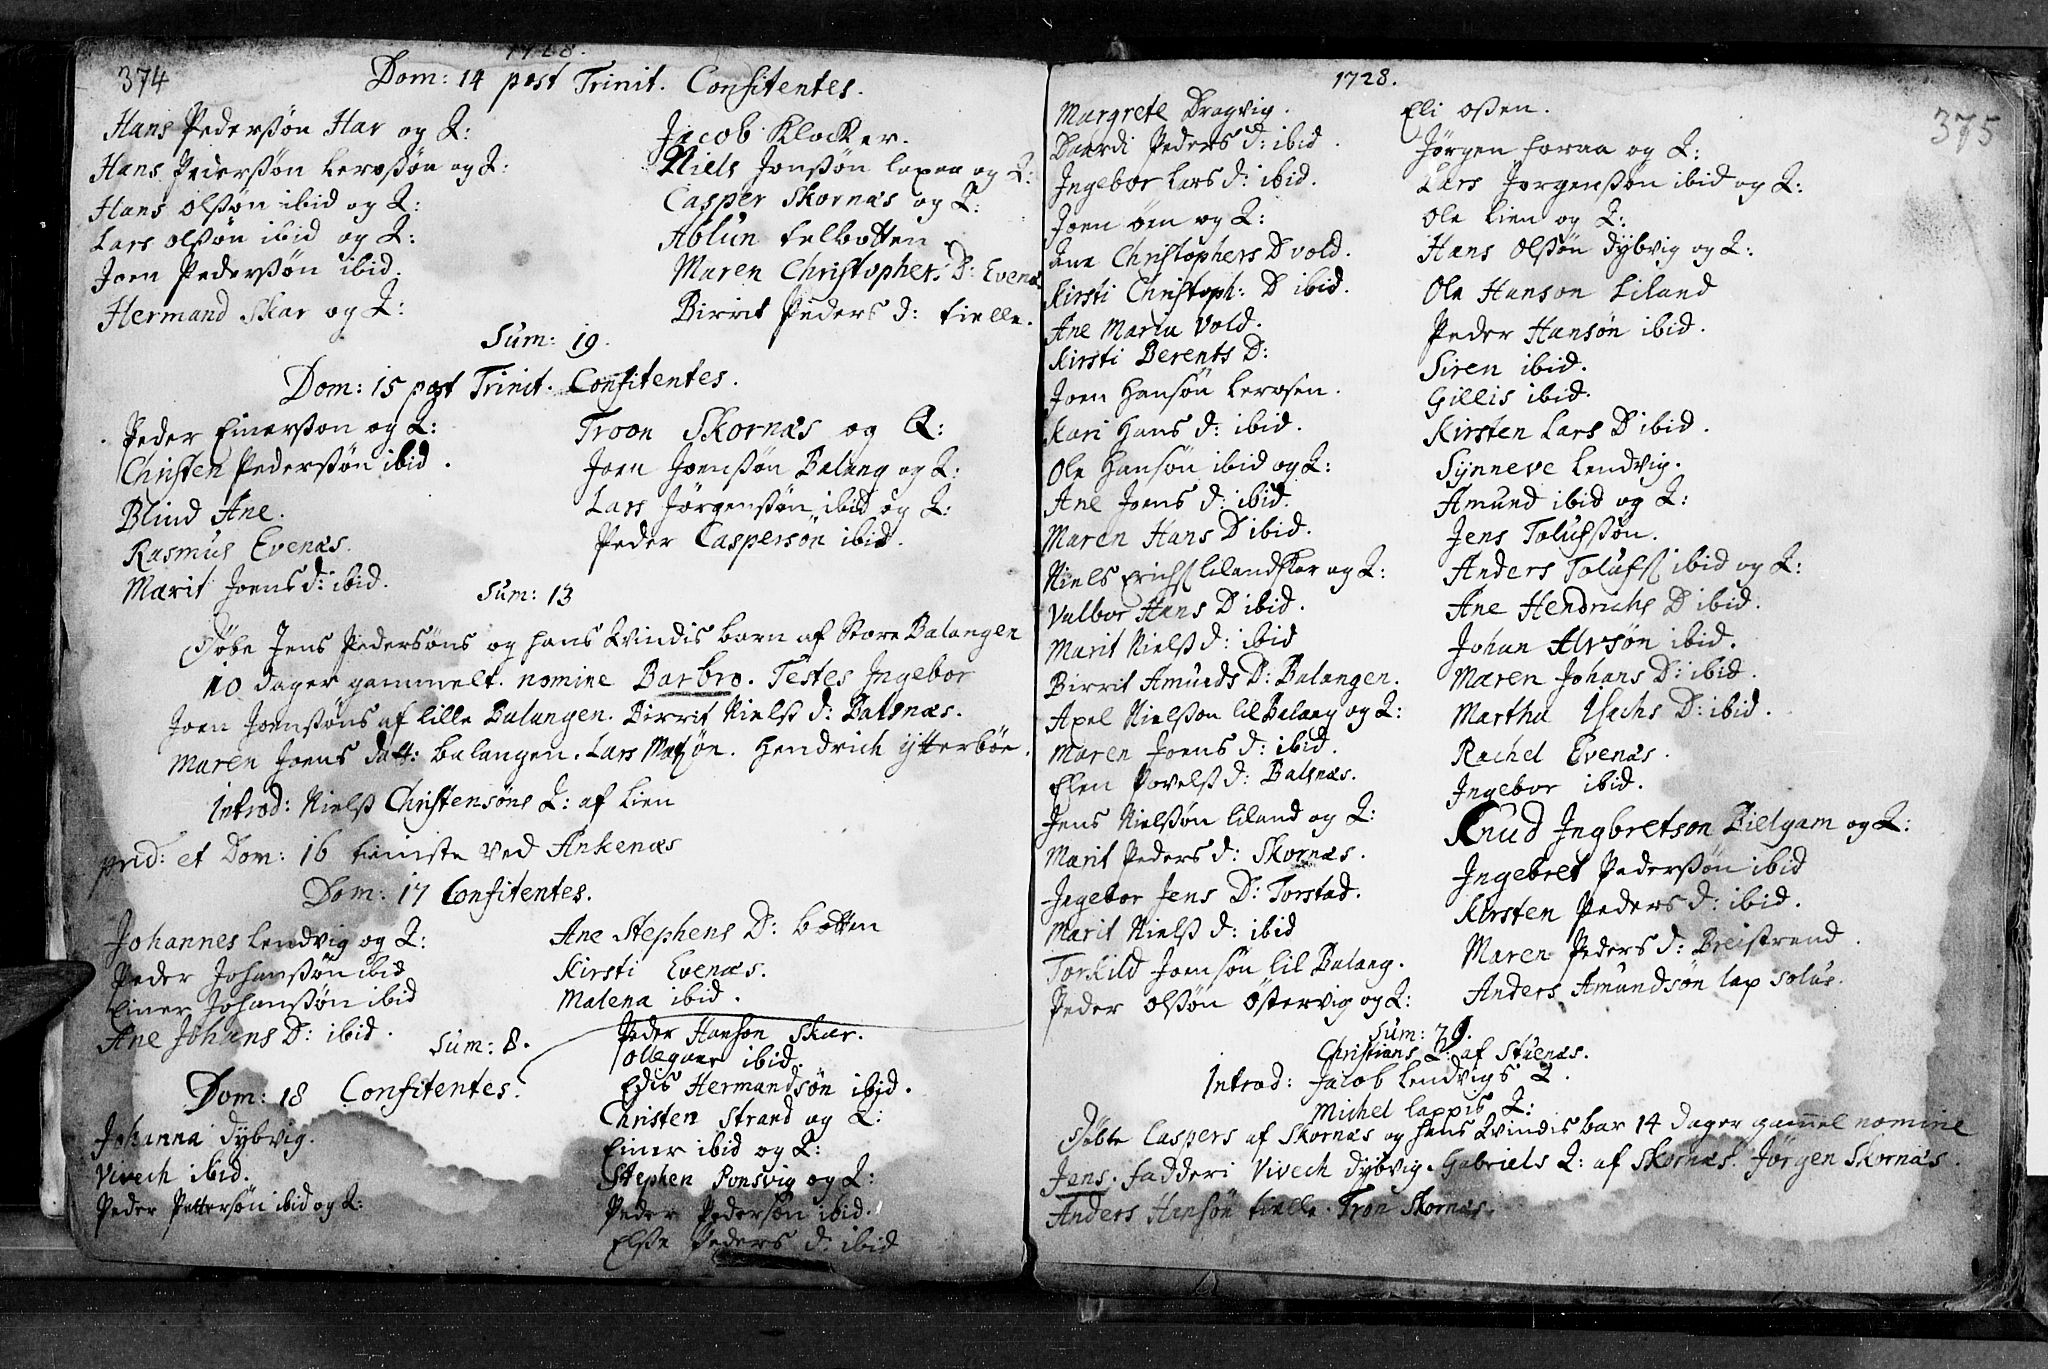 374
1728.
Dom: 14 post Trinit. Confitentes.
Hans Pederssøn Har og Q:
Hans Pederssøn Lerossøn og Q:
Hans Olssøn ibid og Q:
Lars Olssøn ibid og Q:
Joen Pederssøn ibid.
Hermand Skar og Q:
Jacob Klocker.
Niels Jonssøn lapaa og Q:
Casper Skornæs og Q:
Ablun felbotten.
Maren Christophers D: Evenæ
Birrit Peders d: fielle.
Sum: 19.
Dom: 15 post Trinit. Confitentes.
Peder Einersson og Q:
Christen Pederssøn ibid.
Blind Ane.
Rasmus Evenæs.
Marit Joens d: ibid.
Troon Skornæs og Q:
Joen Joenssøn Balang og Q:
Lars Jørgenssøn ibid og Q:
Peder Caspersøn ibid.
Sum: 13
Døbe Jens Pedersøns og hans Qvindis barn af Store Balangen
10 dager gammelt. nomine Barbro. Testes Ingebor
Joen Joenssøns af lille Balangen. Birrit Nielss d: Balsnæs.
Maren Joens datt: balangen. Lars Matsøn. Hendrich ytterbøe.
Introd: Nielss Christensøns Q: af Lien
prid: et Dom: 16 tieniste ved Ankenæs
Dom: 17 Confitentes.
Johannes Lendvig og Q:
Peder Johanssøn ibid
Einer Johanssøn ibid
Ane Johans D: ibid.
Ane Stephens D: botten
Kirsti Evenæs.
Malena ibid.
Sum: 8.
Dom: 18 Confitentes.
Johanna dybvig.
Vivech ibid.
Peder Pettersøn ibid og Q:
Peder Hanson Skar.
Ollegaar ibid.
Edis Hermandsøn ibid.
Christen Strand og Q:
Einer ibid og Q:
Stephen Ponsvig og Q:
Peder Pedersøn ibid.
Elsse Peders d: ibid
1728.
375
Margrete Dragvig.
Daardi Peders d: ibid.
Ingebor Lars d: ibid.
Joen øen og Q:
Ane Christophers D vold.
Kirsti Christoph: D ibid.
Ane Maria Vold.
Kirsti Berents D:
Joen Hansøn Lerosen.
Kari Hans d: ibid.
Ole Hansøn ibid og Q:
Ane Joens d: ibid.
Maren Hans D ibid.
Niels Erichs lilandskar og Q:
Valbor Hans D ibid.
Marit Nielss d: ibid
Birrit Amunds D: Balangen.
Axel Nielsson lil Balang og Q:
Maren Joens d: ibid.
Elen Povelss d: Balsnæs.
Jens Nielssøn Liland og Q:
Marit Peders d: Skornæs.
Ingebor Jens D: Torstad.
Marit Nielss d: ibid
Torkild Joensøn lil Balang.
Peder Olssøn Østervig og Q:
Eli ossen.
Jørgen foraa og Q:
Lars Jørgenssøn ibid og Q:
Ole Lien og Q:
Hans Olssøn dybvig og Q:
Ole Hanson Liland
Peder Hansøn ibid.
Siren ibid.
Gillis ibid.
Kirsten Lars D ibid.
Synneve Lendvig.
Amund ibid og Q:
Jens Tolufssøn.
Anders Tolufs ibid og Q:
Ane Hendrichs D ibid.
Johan Alvsøn ibid.
Maren Johans D: ibid.
Martha Isachs D: ibid.
Rachel Evenæs.
Ingebor ibid.
Knud Ingbretson Bielgam og Q:
Ingebret Pederssøn ibid
Kirsten Peders d: ibid.
Maren Peders d: Breistrand.
Anders Amundsøn lap solus.
Sum: 79.
Christians Q: af Stuenæs.
Introd: Jacob Lendvigs Q.
Michel lappis Q:
Døbte Caspers af Skornæs og hans Qvindis bar 14 dager gam̄el nomine
Jens. fadderi Vivech dybvig. Gabriels Q: af Skornæs. Jørgen Skornæs.
Anders Hansøn fielle. Tron Skornæs.